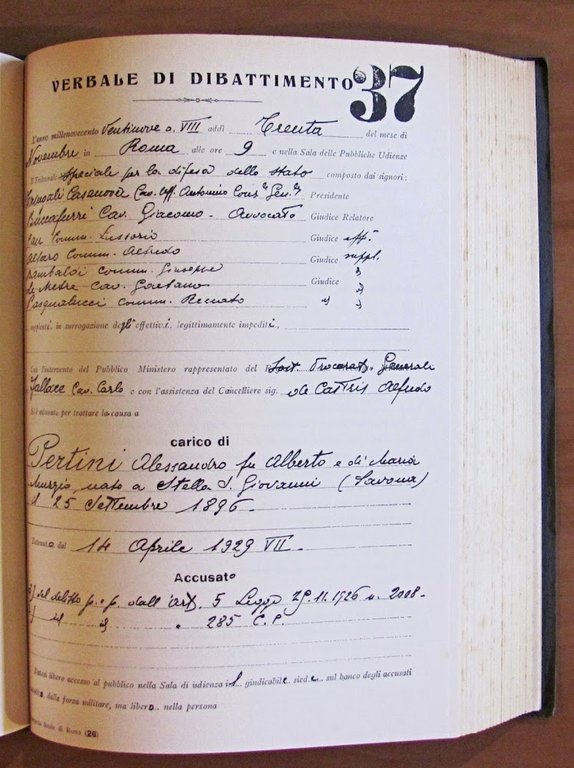 VERBALE DI DIBATTIMENTO 37
L'anno millenovecento Ventinove a. VIII addì Trenta del mese di
Novembre in Roma alle ore 9 e nella Sala delle Pubbliche Udienze
Il Tribunale Speciale per la difesa dello Stato composto dai signori:
Casanova Cav. Uff. Antonino Cons. Gen. Presidente
Buccafurri Cav. Giacomo - Avvocato Giudice Relatore
Comm. Lussorio Giudice eff.
Alfaro Comm. Alfredo Giudice suppl.
Rambaldi Comm. Giuseppe "
de Mestre Cav. Gaetano Giudice "
Pasqualucci Comm. Renato " "
supplenti in surrogazione degli effettivi, legittimamente impediti,
Con l'intervento del Pubblico Ministero rappresentato del Sost. Procurat. Generale
Fallace Cav. Carlo e con l'assistenza del Cancelliere sig. de Cattris Alfredo
Si è adunato per trattare la causa a
carico di
Pertini Alessandro fu Alberto e di Maria
Muzio, nato a Stella S. Giovanni (Savona)
il 25 Settembre 1896 -
Detenuto dal 14 Aprile 1929 VII -
Accusato
del delitto p. e p. dall'art. 5 Legge 25.11.1926 n. 2008 -
id " " 285 C.P.
libero accesso al pubblico nella Sala di udienza il giudicabile siede sul banco degli accusati
dalla forza militare, ma libero nella persona
Reale di Roma (26)